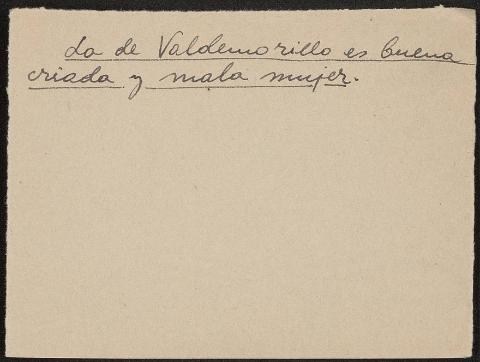 La de Valdemorillo es buena
criada y mala mujer.